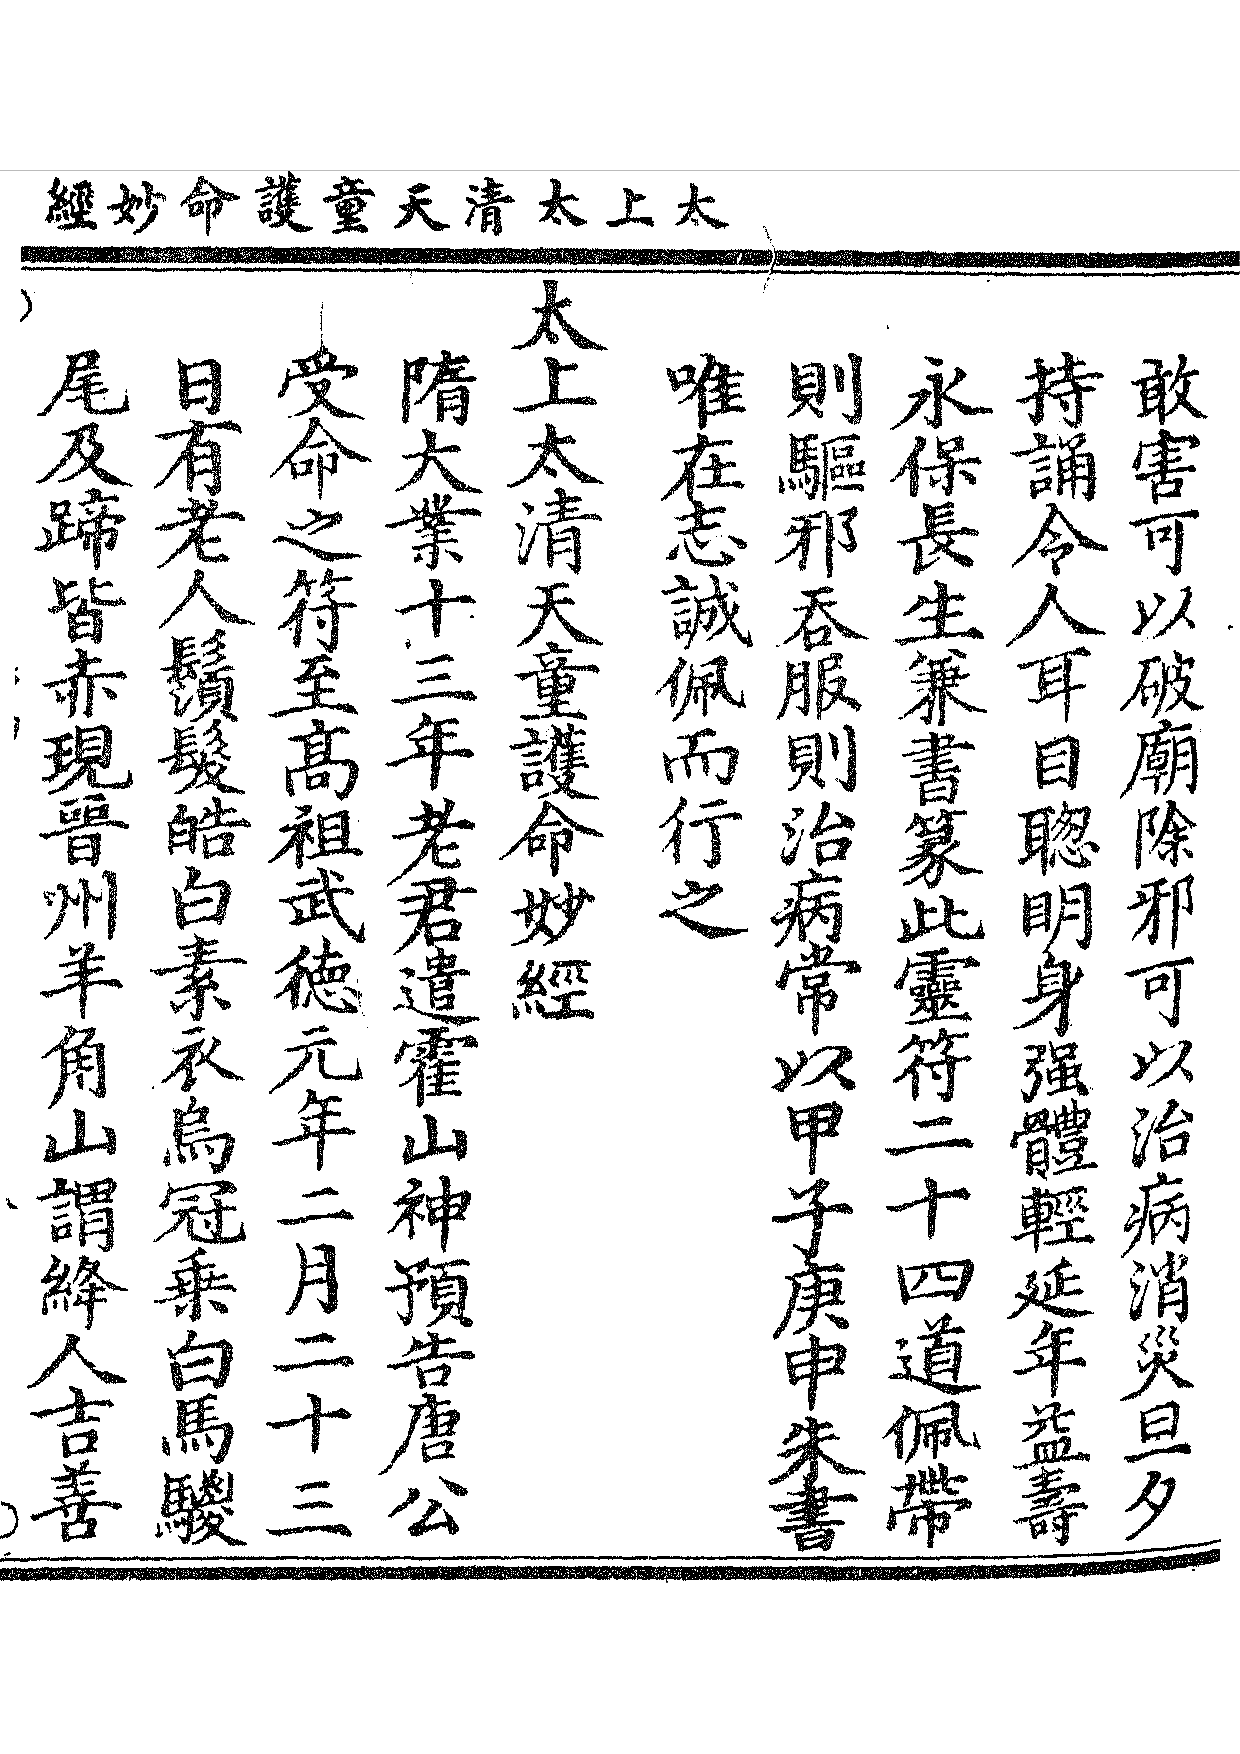 太上太清天童護命妙經
敢害可以破廟除邪可以治病消災旦夕
持誦令人耳目聦明身强體輕延年益壽
永保長生兼書篆此靈符二十四道佩帶
則驅邪吞服則治病常以甲子庚申朱書
唯在志誠佩而行之
太上太清天童護命妙經
隋大業十三年老君遣霍山神預告唐公
受命之符至髙祖武德元年二月二十三
日有老人鬚髮皓白素衣烏冠乗白馬騣
尾及蹄皆赤現晉州羊角山謂絳人吉善